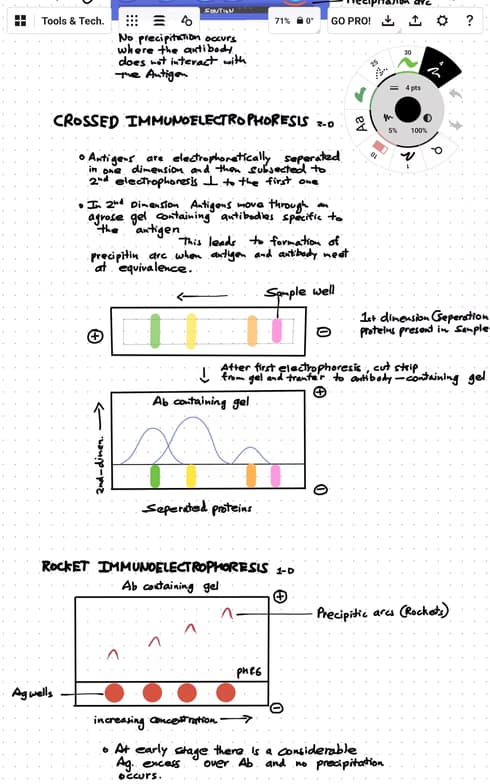 Precipitation arc
Tools & Tech.
71%
0°
GO PRO!
?
No precipitation occurs
where the antibody
does not interact with
the Antigen
30
25
4
4 pts
5%
100%
Aa
10
1
CROSSED IMMUNOELECTROPHORESIS 2-D
Antigens are electrophoretically seperated
in one dimension and then subjected to
2nd electrophoresis ⊥ to the first one
In 2nd Dimension Antigens move through an
agrose gel containing antibodies specific to
the antigen
This leads to formation of
precipitin arc when antigen and antibody meet
at equivalence.
Sample well
1st dimension (Seperation
proteins present in sample
After first electrophoresis, cut strip
from gel and tranfer to antibody-containing gel
Ab containing gel
2nd-dimen.
Seperated proteins
ROCKET IMMUNOELECTROPHORESIS 1-D
Ab containing gel
Precipitic arcs (Rockets)
pH 8.6
Ag wells
increasing concentration
At early stage there is a considerable
Ag. excess over Ab and no precipitation
occurs.